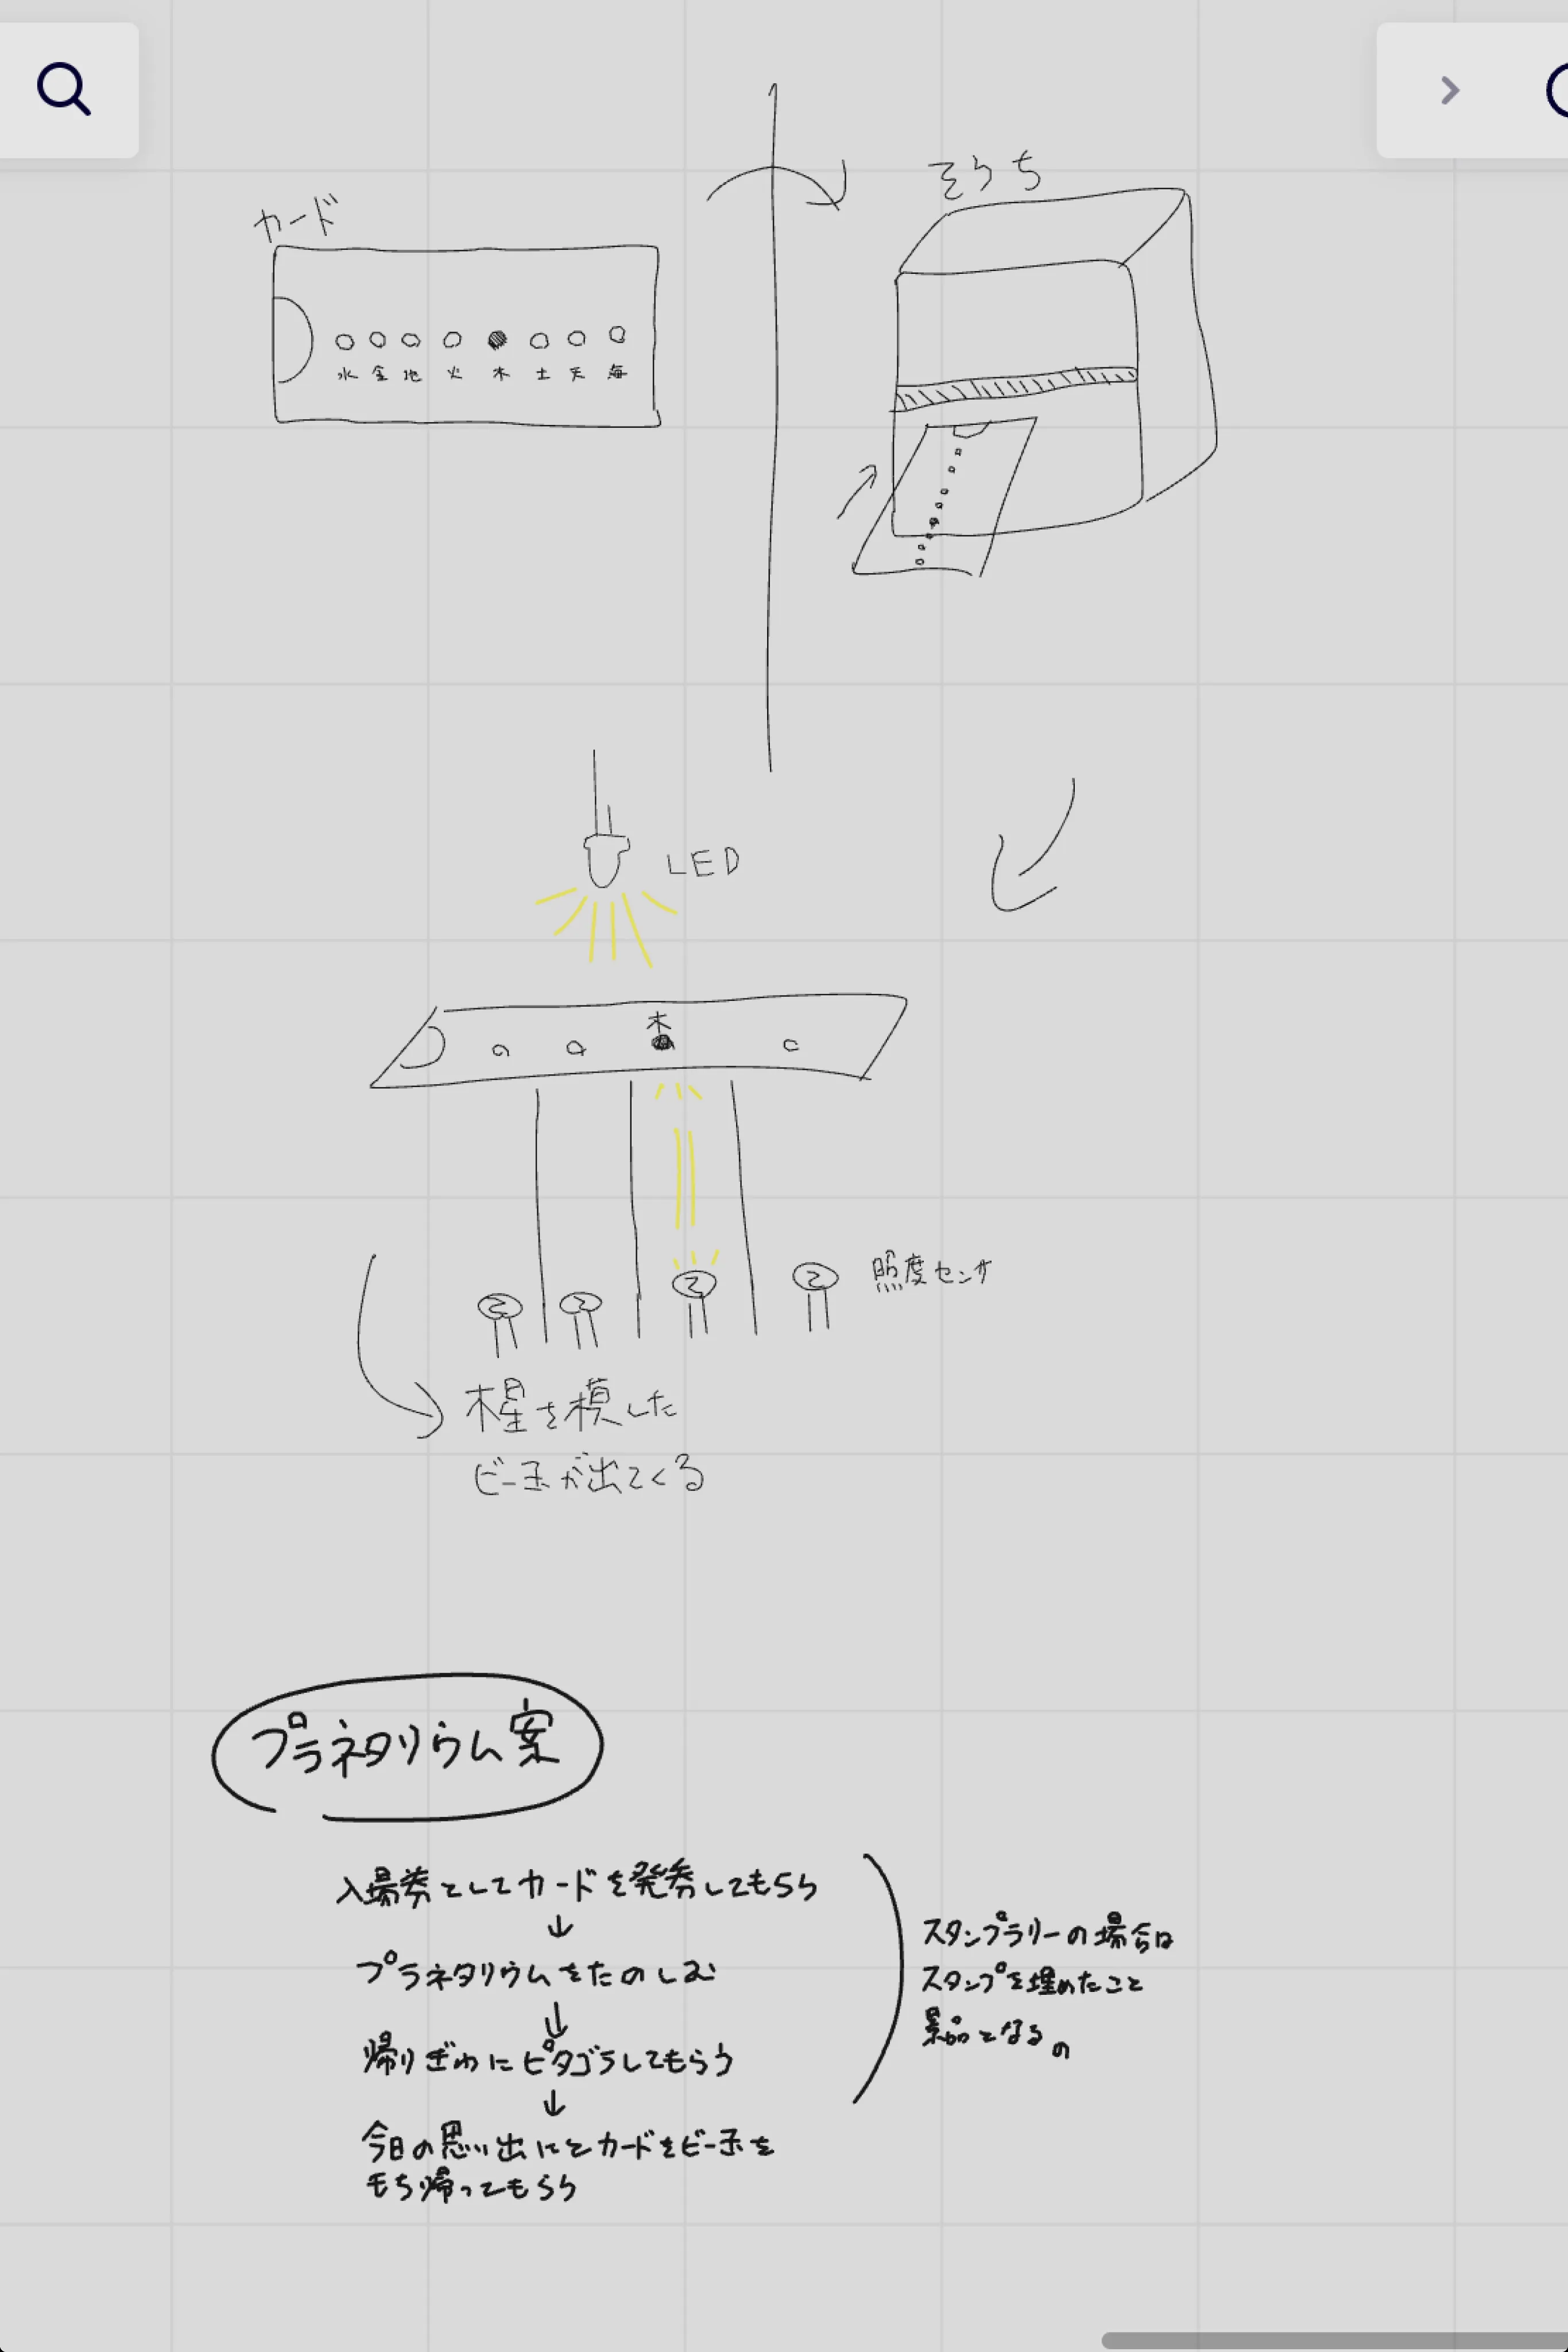 カード
そうち
水 金 地 火 木 土 天 海
LED
木
照度センサ
木星を模した
ビー玉が出てくる
プラネタリウム案
入場券としてカードを発券してもらう
↓
プラネタリウムをたのしむ
↓
帰りぎわにピタゴラしてもらう
↓
今日の思い出にとカードをビー玉を
もち帰ってもらう
スタンプラリーの場合は
スタンプを埋めたこと
景品となるの